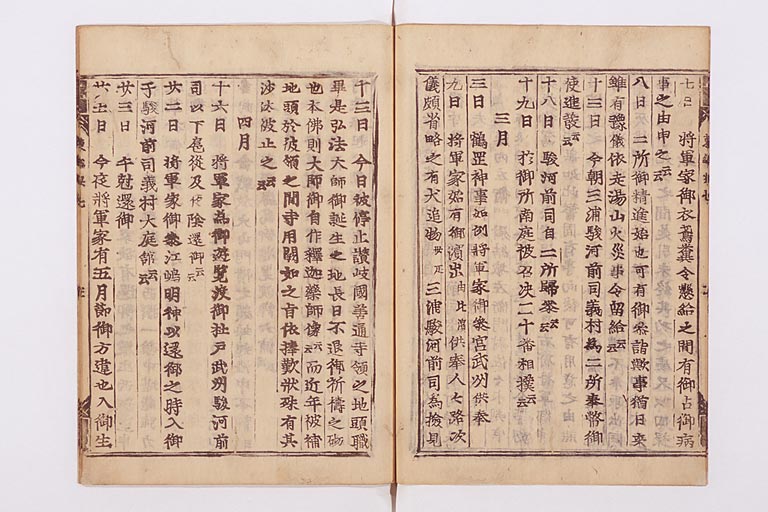 七日　将軍家御衣鳶糞令懸給之間有御占御病
事之由申之云云
八日　二所御精進始也可有御参詣歟事猶日来
雖有豫儀依走湯山火災事令留給云云
十三日　今朝三浦駿河前司義村為二所奉幣御
使進發云云
十八日　駿河前司自二所歸参云云
十九日　於御所南庭被召决二十番相撲云云
三月
三日　鶴罡神事如例将軍家御参宮武州供奉
九日　将軍家始有御濱出由比濱供奉人々路次
儀頗省略之有犬追物廿疋三浦駿河前司為撿見
十三日　今日被停止讃岐國善通寺領之地頭職
畢是弘法大師御誕生之地長日不退御祈禱之砌
也本佛則大師御自作釋迦藥師像云云而近年被補
地頭於彼領之間寺用闕如之旨依捧歎状殊有其
沙汰被止之云云
四月
十六日　将軍家為御遊覧渡御杜戸武州駿河前
司以下扈從及陰還御云云
廿二日　将軍家御参江嶋明神以還御之時入御
于駿河前司義村大庭舘云云
廿三日　午尅還御
廿七日　今夜将軍家有五月節御方違也入御生